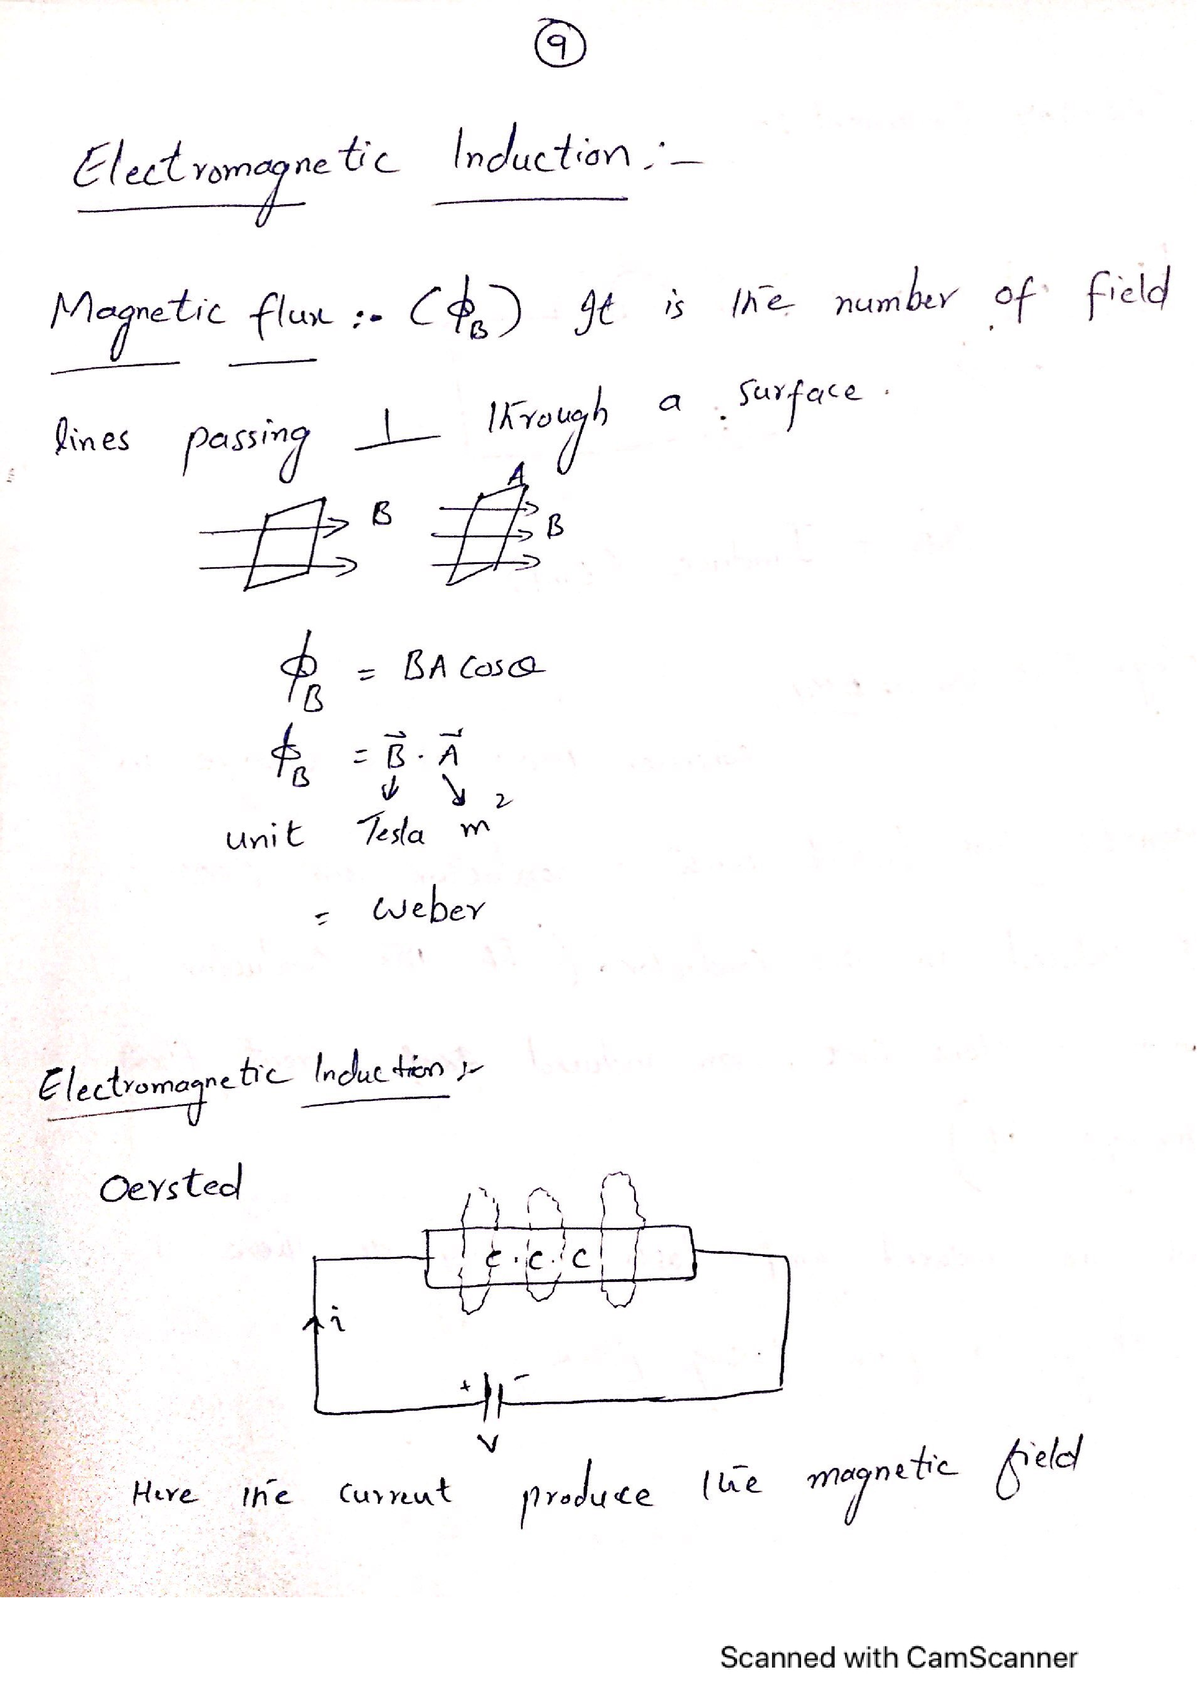 9
Electromagnetic Induction :-
Magnetic flux :- (ϕB) It is the number of field
lines passing ⊥ through a surface.
A
B
B
ϕB = BA cosθ
ϕB = B⃗ . A⃗
unit Tesla m²
= weber
Electromagnetic Induction :-
Oersted
c . c . c
i
+ -
V
Here the current produce the magnetic field
Scanned with CamScanner